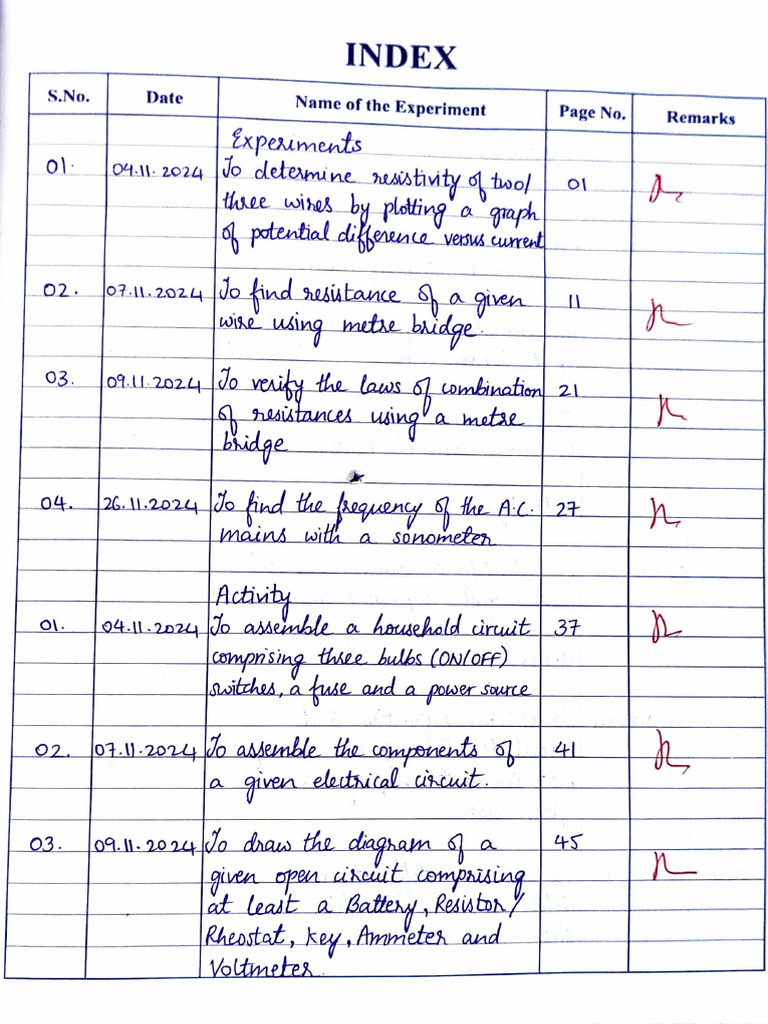 INDEX
S.No. Date Name of the Experiment Page No. Remarks
Experiments
01. 04.11.2024 To determine resistivity of two/ 01
three wires by plotting a graph
of potential difference versus current
02. 07.11.2024 To find resistance of a given 11
wire using metre bridge.
03. 09.11.2024 To verify the laws of combination 21
of resistances using a metre
bridge
04. 26.11.2024 To find the frequency of the A.C. 27
mains with a sonometer
Activity
01. 04.11.2024 To assemble a household circuit 37
comprising three bulbs (ON/OFF)
switches, a fuse and a power source
02. 07.11.2024 To assemble the components of 41
a given electrical circuit.
03. 09.11.2024 To draw the diagram of a 45
given open circuit comprising
at least a Battery, Resistor/
Rheostat, key, Ammeter and
Voltmeter.